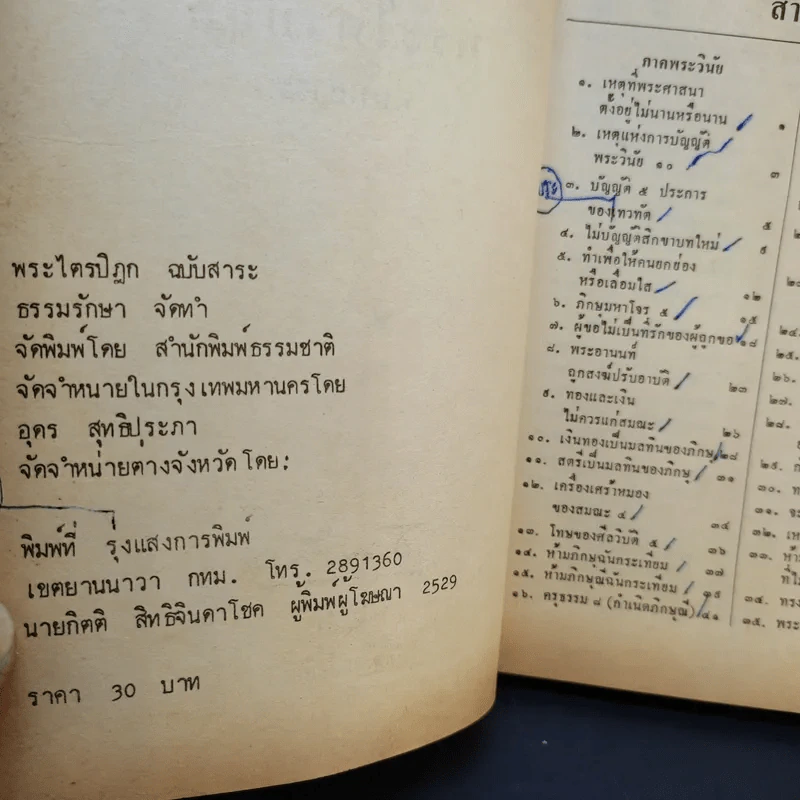 พระไตรปิฎก ฉบับสาระ
ธรรมรักษา จัดทำ
จัดพิมพ์โดย สำนักพิมพ์ธรรมชาติ
จัดจำหน่ายในกรุงเทพมหานครโดย
อุดร สุทธิประภา
จัดจำหน่ายต่างจังหวัดโดย:
พิมพ์ที่ รุ่งแสงการพิมพ์
เขตยานนาวา กทม. โทร. 2891360
นายกิตติ สิทธิจินดาโชค ผู้พิมพ์ผู้โฆษณา 2529
ราคา 30 บาท
สา
ภาคพระวินัย
๑. เหตุที่พระศาสนา
ตั้งอยู่ไม่นานหรือนาน ๑
๒. เหตุแห่งการบัญญัติ
พระวินัย ๑๐ ๓
๓. บัญญัติ ๕ ประการ
ของเทวทัต ๕
๔. ไม่บัญญัติสิกขาบทใหม่ ๙
๕. ทำเพื่อให้คนยกย่อง
หรือเลื่อมใส ๑๒
๖. ภิกษุมหาโจร ๕ ๑๕
๗. ผู้ขอไม่เป็นที่รักของผู้ถูกขอ ๑๘
๘. พระอานนท์
ถูกสงฆ์ปรับอาบัติ ๒๓
๙. ทองและเงิน
ไม่ควรแก่สมณะ ๒๖
๑๐. เงินทองเป็นมลทินของภิกษุ ๒๘
๑๑. สตรีเป็นมลทินของภิกษุ ๓๑
๑๒. เครื่องเศร้าหมอง
ของสมณะ ๔ ๓๔
๑๓. โทษของศีลวิบัติ ๕ ๓๖
๑๔. ห้ามภิกษุฉันกระเทียม ๓๗
๑๕. ห้ามภิกษุณีฉันกระเทียม ๓๙
๑๖. ครุธรรม ๘ (กำเนิดภิกษุณี) ๔๑
๒๔.
๒๕.
๒๖.
๒๗.
๒๘.
๒๙.
๓๐.
๓๑.
๓๒.
๓๓.
๓๔. ทรง
๓๕. พระ